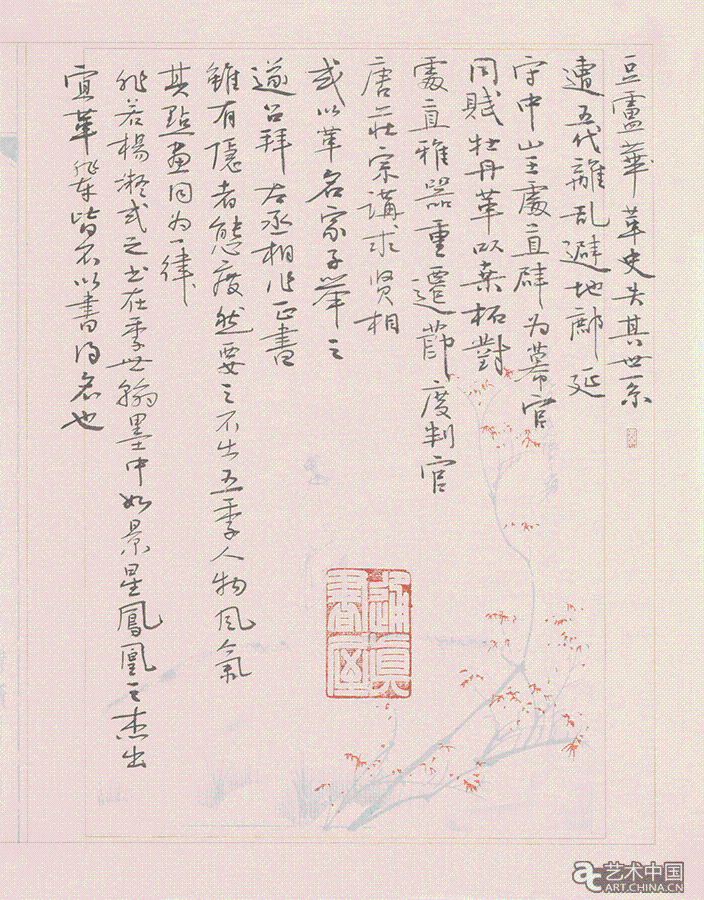 豆盧革 革史失其世系
遭五代離乱避地鄜延
守中山王處直辟为幕官
同賦牡丹革以桑柘對
處直雅器重遷節度判官
唐莊宗講求贤相
或以革名家子举之
遂召拜左丞相作正書
雖有隱者態度然要之不出五季人物风氣
其點畫同为一律
非若楊凝式之书在季世翰墨中如景星鳳凰之杰出
宜革輩皆不以書得名也
艺术中国
ART.CHINA.CN